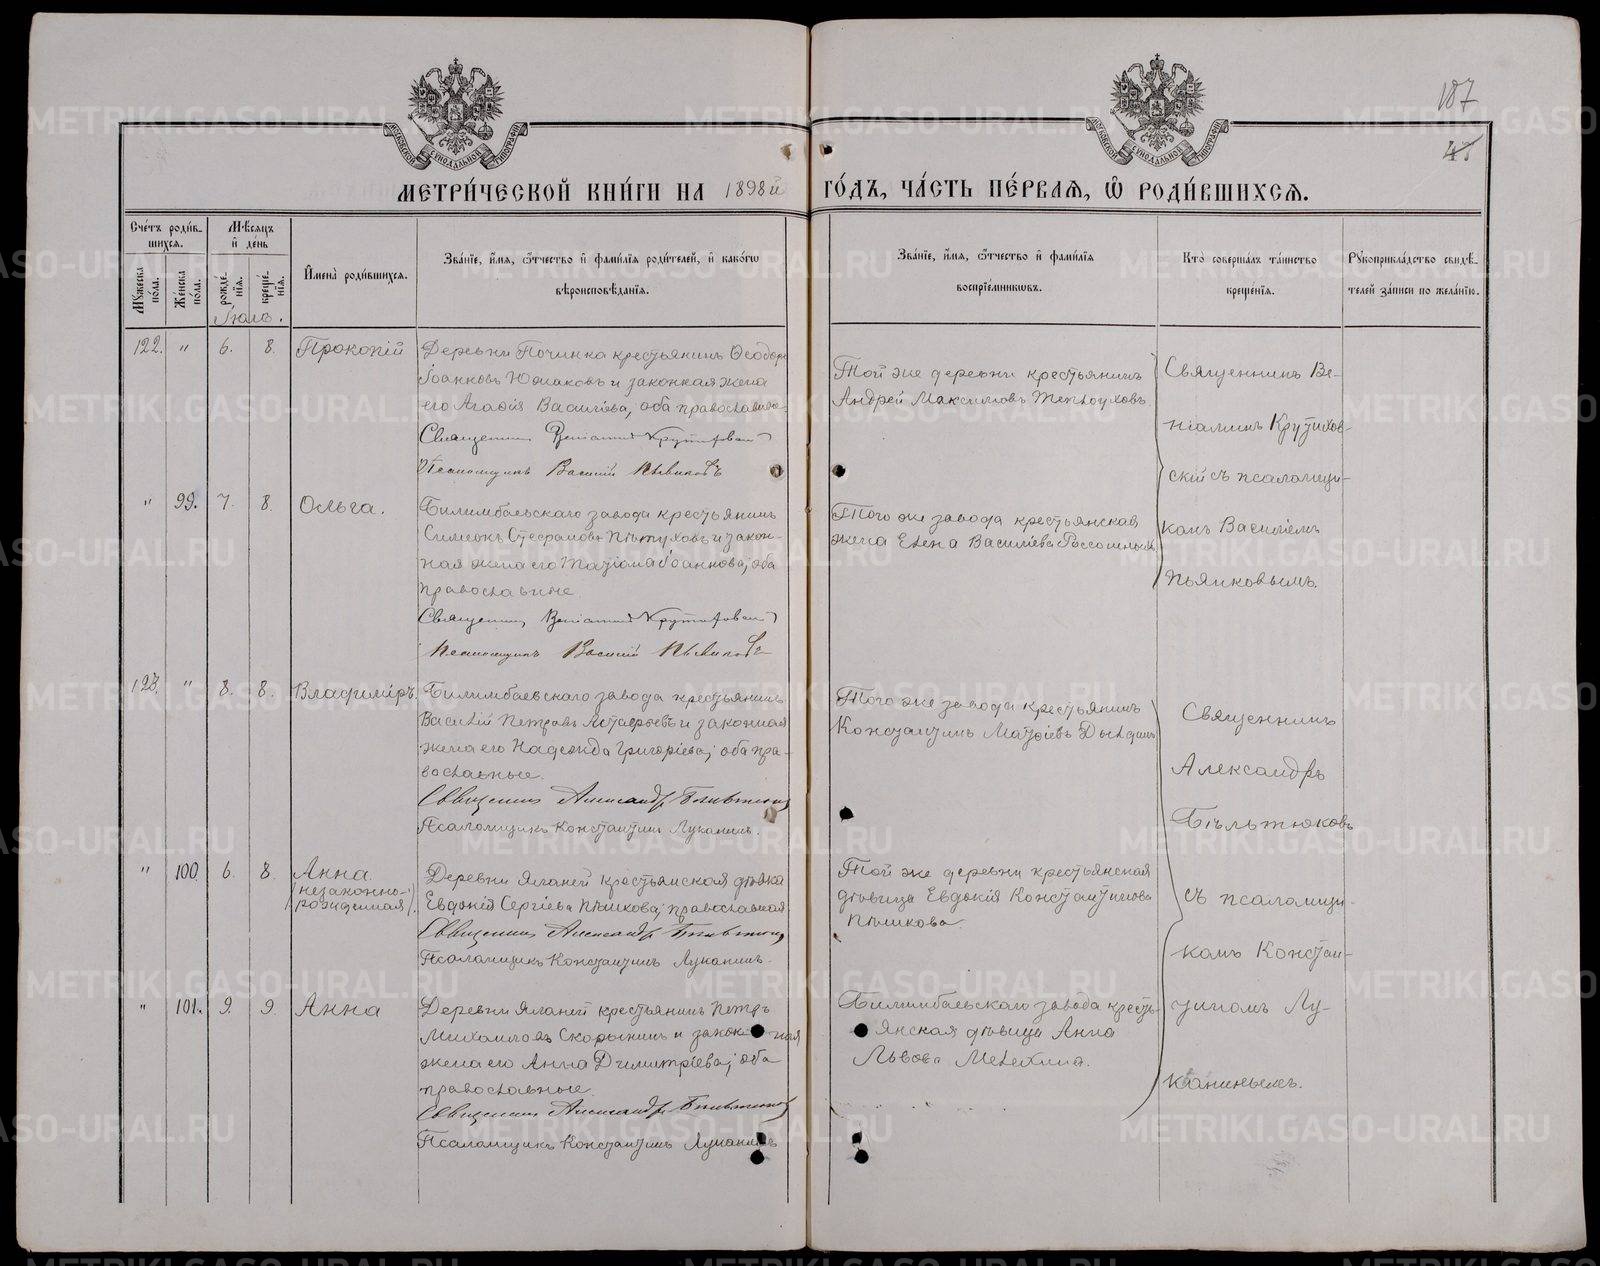 187
45
МЕТРИ́ЧЕСКОЙ КНИ́ГИ НА 1898й ГО́ДЪ, ЧА́СТЬ ПЕ́РВАѦ, Ѡ҆ РОДИ́ВШИХСѦ.
Сче́тъ роди́в-
шихся.
Мꙋ́жеска по́ла.
Же́нска по́ла.
Мѣ́сяцъ
и҆ де́нь
рожде́-
нїя.
креще́-
нїя.
Іюль.
И҆мена̀ роди́вшихся.
Зва́нїе, и҆́мя, ѻ҆́тчество и҆ фами́лїя роди́телей, и҆ како́гѡ
вѣроисповѣ́данїя.
Зва́нїе, и҆́мя, ѻ҆́тчество и҆ фами́лїя
воспрїе́мниковъ.
Кто̀ соверша́лъ та́инство
креще́нїя.
Рꙋкоприкла́дство свидѣ́-
телей за́писи по жела́нїю.
122. " 6. 8. Прокопій
Деревни Починка крестьянинъ Ѳеодоръ
Іоанновъ Южаковъ и законная жена
его Агафія Василіева, оба православные.
Священникъ Веніаминъ Крутиховскій
Псаломщикъ Василій Пьянковъ
Той же деревни крестьянинъ
Андрей Максимовъ
Священникъ Ве-
ніаминъ Крутихов-
скій съ псаломщи-
комъ Василіемъ
Пьянковымъ.
" 99. 7. 8. Ольга.
Билимбаевскаго завода крестьянинъ
Симеонъ Стефановъ Пѣтуховъ и закон-
ная жена его Татіана Іоаннова, оба
православные.
Священникъ Веніаминъ Крутиховскій
Псаломщикъ Василій Пьянковъ
Того же завода крестьянская
жена Елена Василіева
123. " 8. 8. Владиміръ.
Билимбаевскаго завода крестьянинъ
Василій Петровъ Астафьевъ и законная
жена его Надежда Григоріева; оба пра-
вославные.
Священникъ Александръ Бѣльтюковъ
Псаломщикъ Константинъ Луканинъ.
Того же завода крестьянинъ
Константинъ Матѳіевъ Дылдинъ
Священникъ
Александръ
Бѣльтюковъ
съ псаломщи-
комъ Констан-
тиномъ Лу-
канинымъ.
" 100. 6. 8. Анна.
(незаконно-
рожденная).
Деревни Яланей крестьянская дѣвка
Евдокія Сергіева Пѣшкова; православная
Священникъ Александръ Бѣльтюковъ
Псаломщикъ Константинъ Луканинъ.
Той же деревни крестьянская
дѣвица Евдокія Константинова
Пѣшкова.
" 101. 9. 9. Анна
Деревни Яланей крестьянинъ Петръ
Михаиловъ Скорынинъ и законная
жена его Анна Димитріева; оба
православные.
Священникъ Александръ Бѣльтюковъ
Псаломщикъ Константинъ Луканинъ
Билимбаевскаго завода кресть-
янская дѣвица Анна
Львова Мелехина.